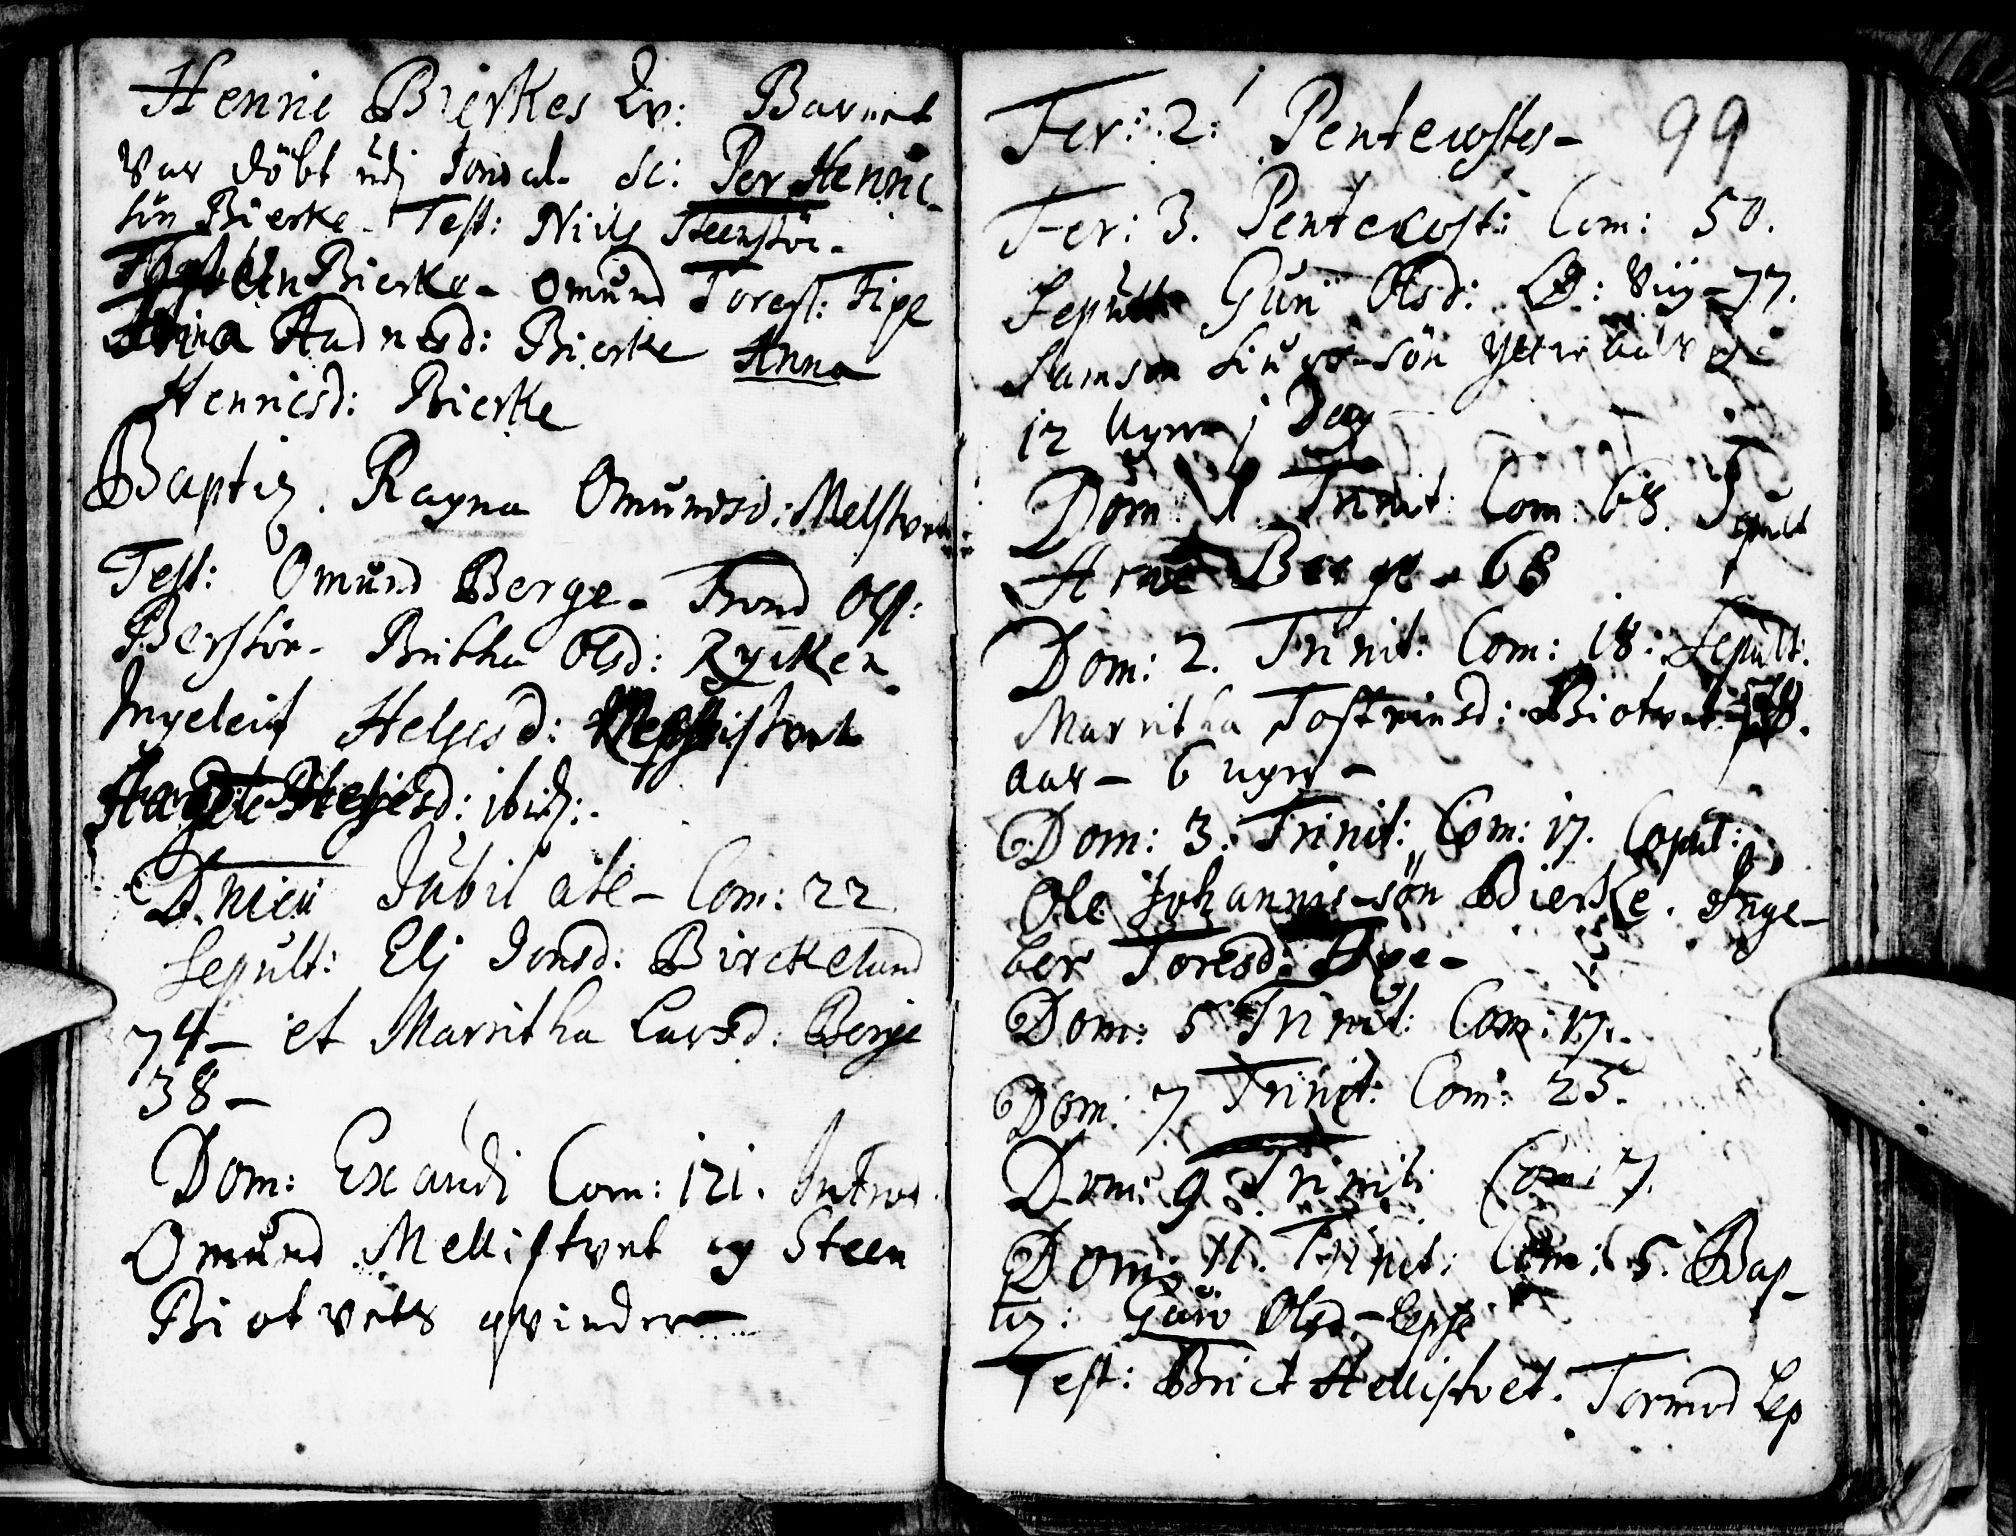 Henric Bierkes Qv: Barnet
var döbt udj Jondal. Sc: Per Henric-
sön Bierke. Test: Niels Steenstöe.
Bierke. Omund Toress: Fixe
Hadnesd: Bierke Anna
Henricsd: Bierke
Baptiz. Ragna Omundsd: Melstvet
Test: Omund Berge. Trond Ols:
Berstöe. Britha Olsd: Rycken
Ingeleif Helgesd:
Helgesd: ibid:.
Dnicâ Jubilate - Com: 22
Sepult: Elj Jonsd: Birckeland
74 - et Marritha Larsd: Berge
38 -
Dom: Exaudi Com: 121. Introd
Omund Mellistvet og Steen
Biotvets qvinder
Fer: 2: Pentecostes - 99
Fer: 3. Pentecost: Com: 50.
Sepult Guri Olsd: Viig - 77.
Samson Siurs-sön
12 uger 1 Dag
Dom 1. Trinit: Com: 68. Sepult
Arne Berge. 68
Dom: 2. Trinit: Com: 18: Sepult:
Marritha Tostensd: Biotvet
aar - 6 uger -
Dom: 3. Trinit: Com: 17. Copul:
Ole Johannis-sön Bierke. Inge-
bor Toresd:
Dom: 5 Trinit: Com: 17.
Dom: 7 Trinit: Com: 25.
Dom: 9. Trinit: Com: 7.
Dom: 11. Trinit: Com: 5. Bap-
tiz: Guro Olsd - Lepse
Test: Brict Hellistvet. Tormod Lep